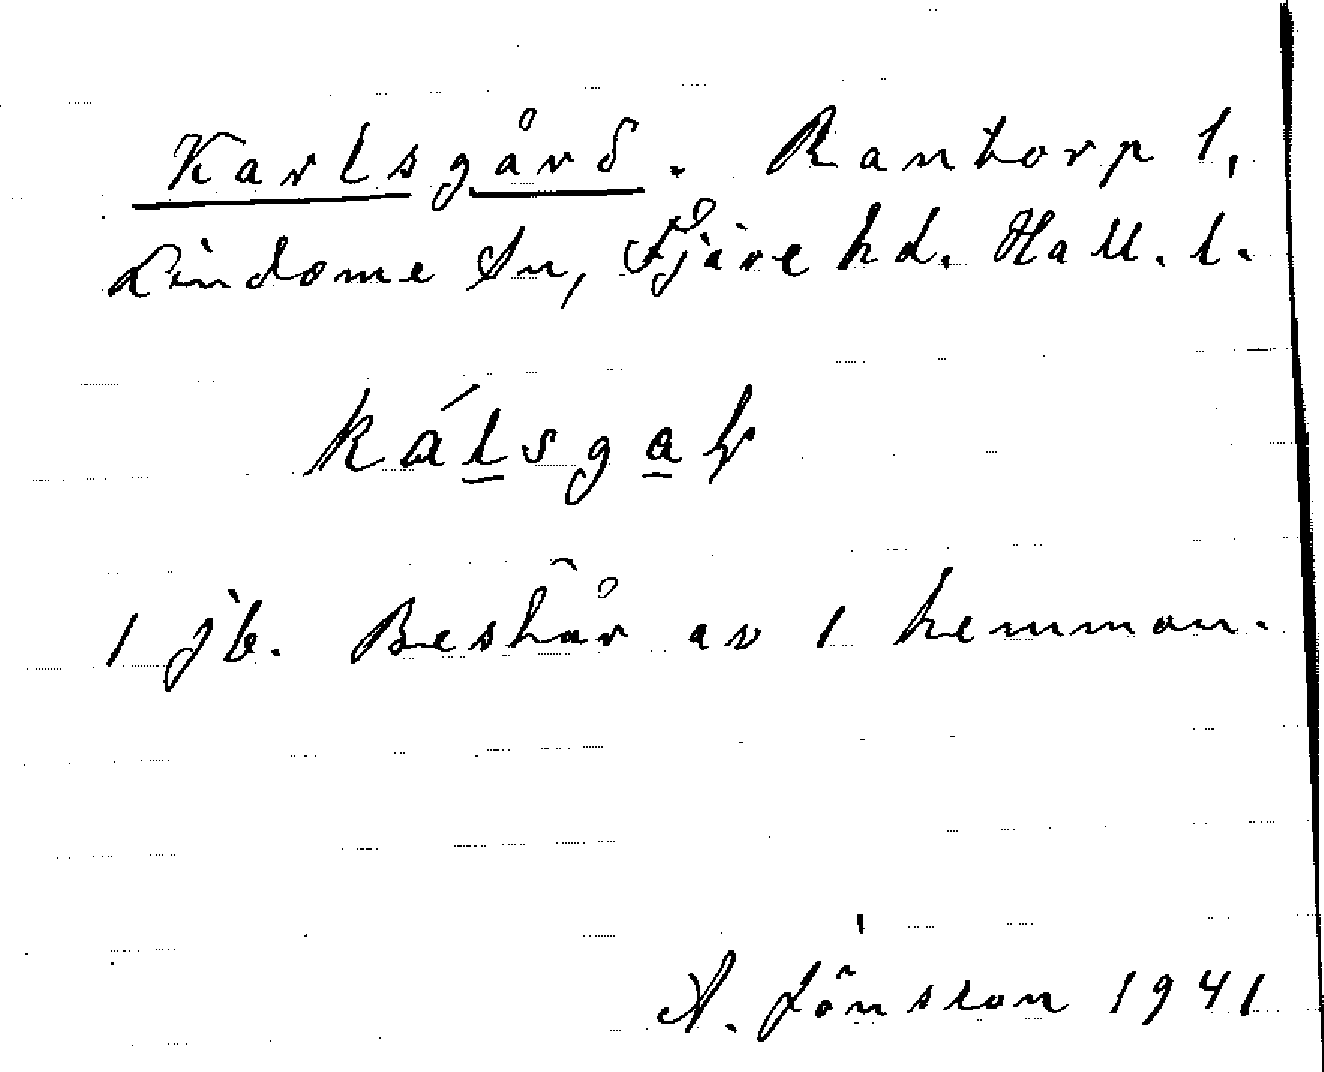 Karlsgård. Rantorp 1,
Lindome sn, Fjäre hd. Hall. l.
kálsgaɽ
1 jb. Består av 1 hemman.
A. Jönsson 1941